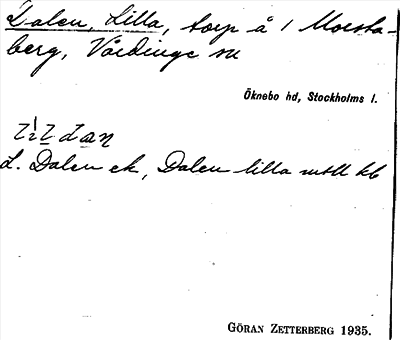 Dalen, Lilla, torp å 1 Morsta-
berg, Vårdinge sn
Öknebo hd, Stockholms l.
L. Dalen ek, Dalen lilla mtll kb
GÖRAN ZETTERBERG 1935.